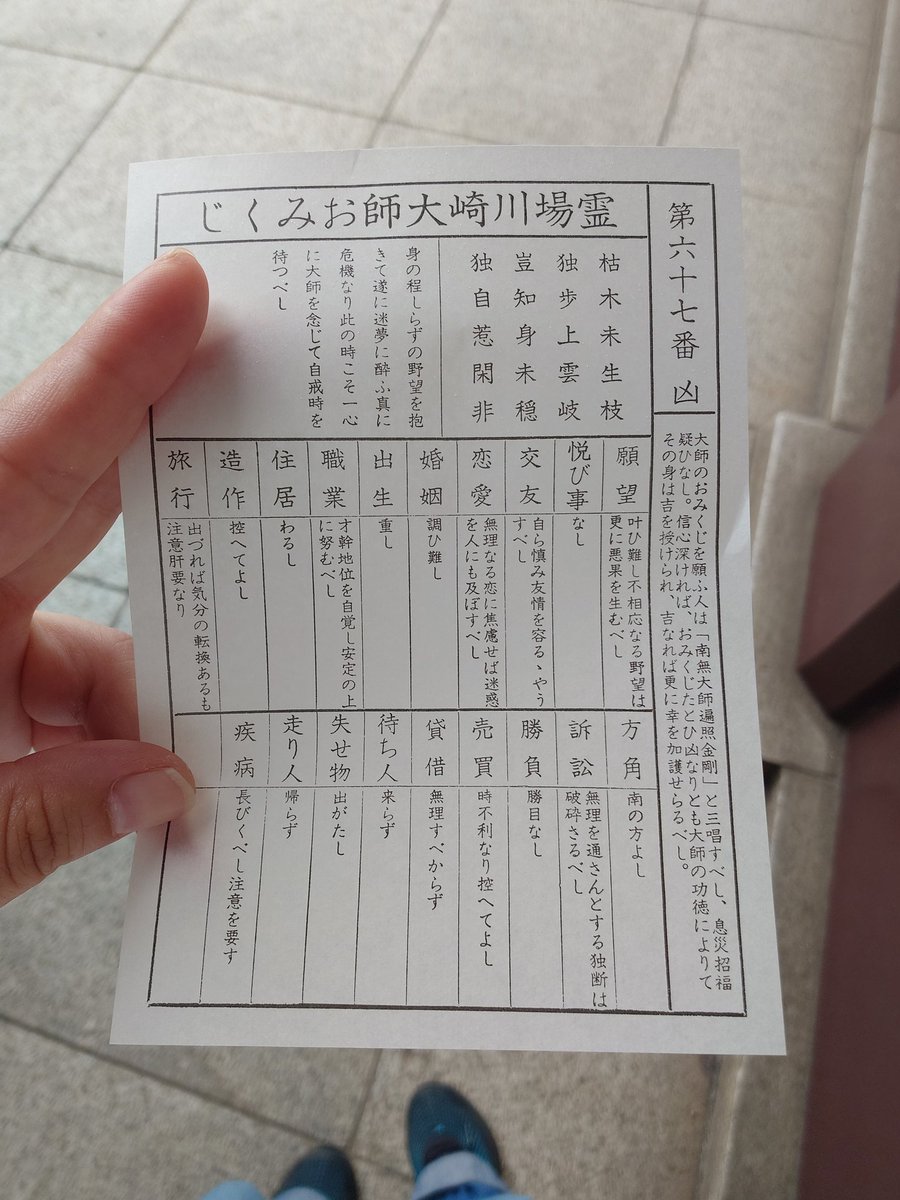 第六十七番 凶
大師のおみくじを願ふ人は「南無大師遍照金剛」と三唱すべし、息災招福
疑ひなし。信心深ければ、おみくじたとひ凶なりとも大師の功徳によりて
その身は吉を授けられ、吉なれば更に幸を加護せらるべし。
霊場川崎大師おみくじ
枯木未生枝
独歩上雲岐
豈知身未穏
独自惹閑非
身の程しらずの野望を抱
きて遂に迷夢に酔ふ真に
危機なり此の時こそ一心
に大師を念じて自戒時を
待つべし
願望
叶ひ難し不相応なる野望は
更に悪果を生むべし
悦び事
なし
交友
自ら慎み友情を容るゝやう
すべし
恋愛
無理なる恋に焦慮せば迷惑
を人にも及ぼすべし
婚姻
調ひ難し
出生
重し
職業
才幹地位を自覚し安定の上
に努むべし
住居
わるし
造作
控へてよし
旅行
出づれば気分の転換あるも
注意肝要なり
方角
南の方よし
訴訟
無理を通さんとする独断は
破砕さるべし
勝負
勝目なし
売買
時不利なり控へてよし
貸借
無理すべからず
待ち人
来らず
失せ物
出がたし
走り人
帰らず
疾病
長びくべし注意を要す